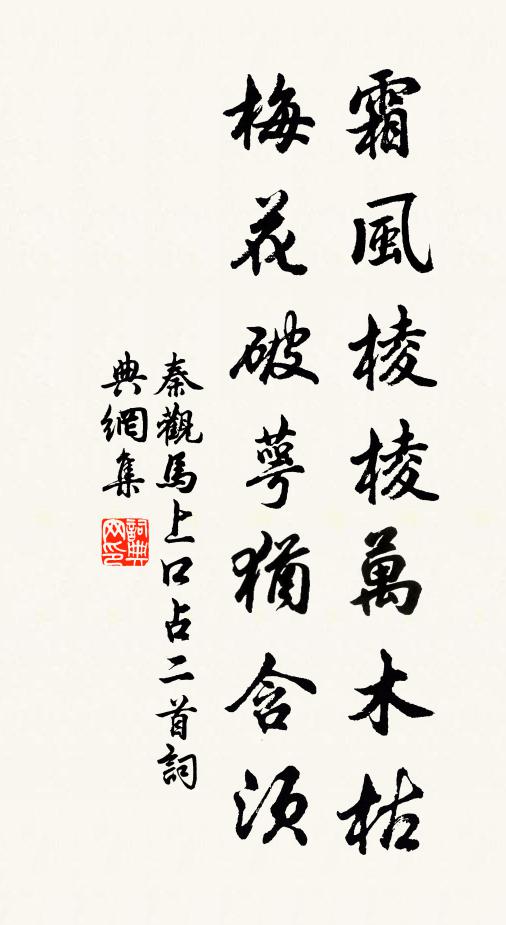 霜風棱棱萬木枯
梅花破萼猶含須
秦觀馬上口占二首詞
典網集
詞典網印